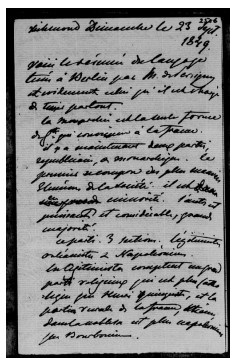 Richmond Dimanche le 23 Sept.
1849.
Voici le résumé du langage
tenu à Berlin par M. de Persigny
et évidemment celui qu'il est chargé
de tenir partout.
La monarchie est la seule forme
de gt qui convienne à la france.
il y a maintenant deux partis,
républicain, et monarchique. Le
premier se compose du plus mauvais
élément de la société. il est
minorité. l'autre est
puissant et considérable, grande
majorité.
ce parti 3 sections, légitimistes
orléanistes & Napoléoniens.
les légitimistes comptent un grand
parti religieux qui est plus
que Henri quinquiste, et la
partie rurale de la france,
dans la noblesse est plus napoléonienne
que Bourbonienne.